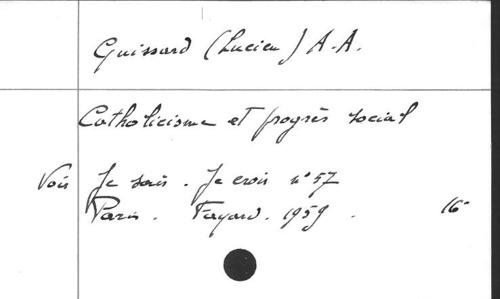 Guissard (Lucien) A.A.
Catholicisme et progrès social
Voir Je sais . Je crois n° 57
Paris . Fayard . 1959 . 16°